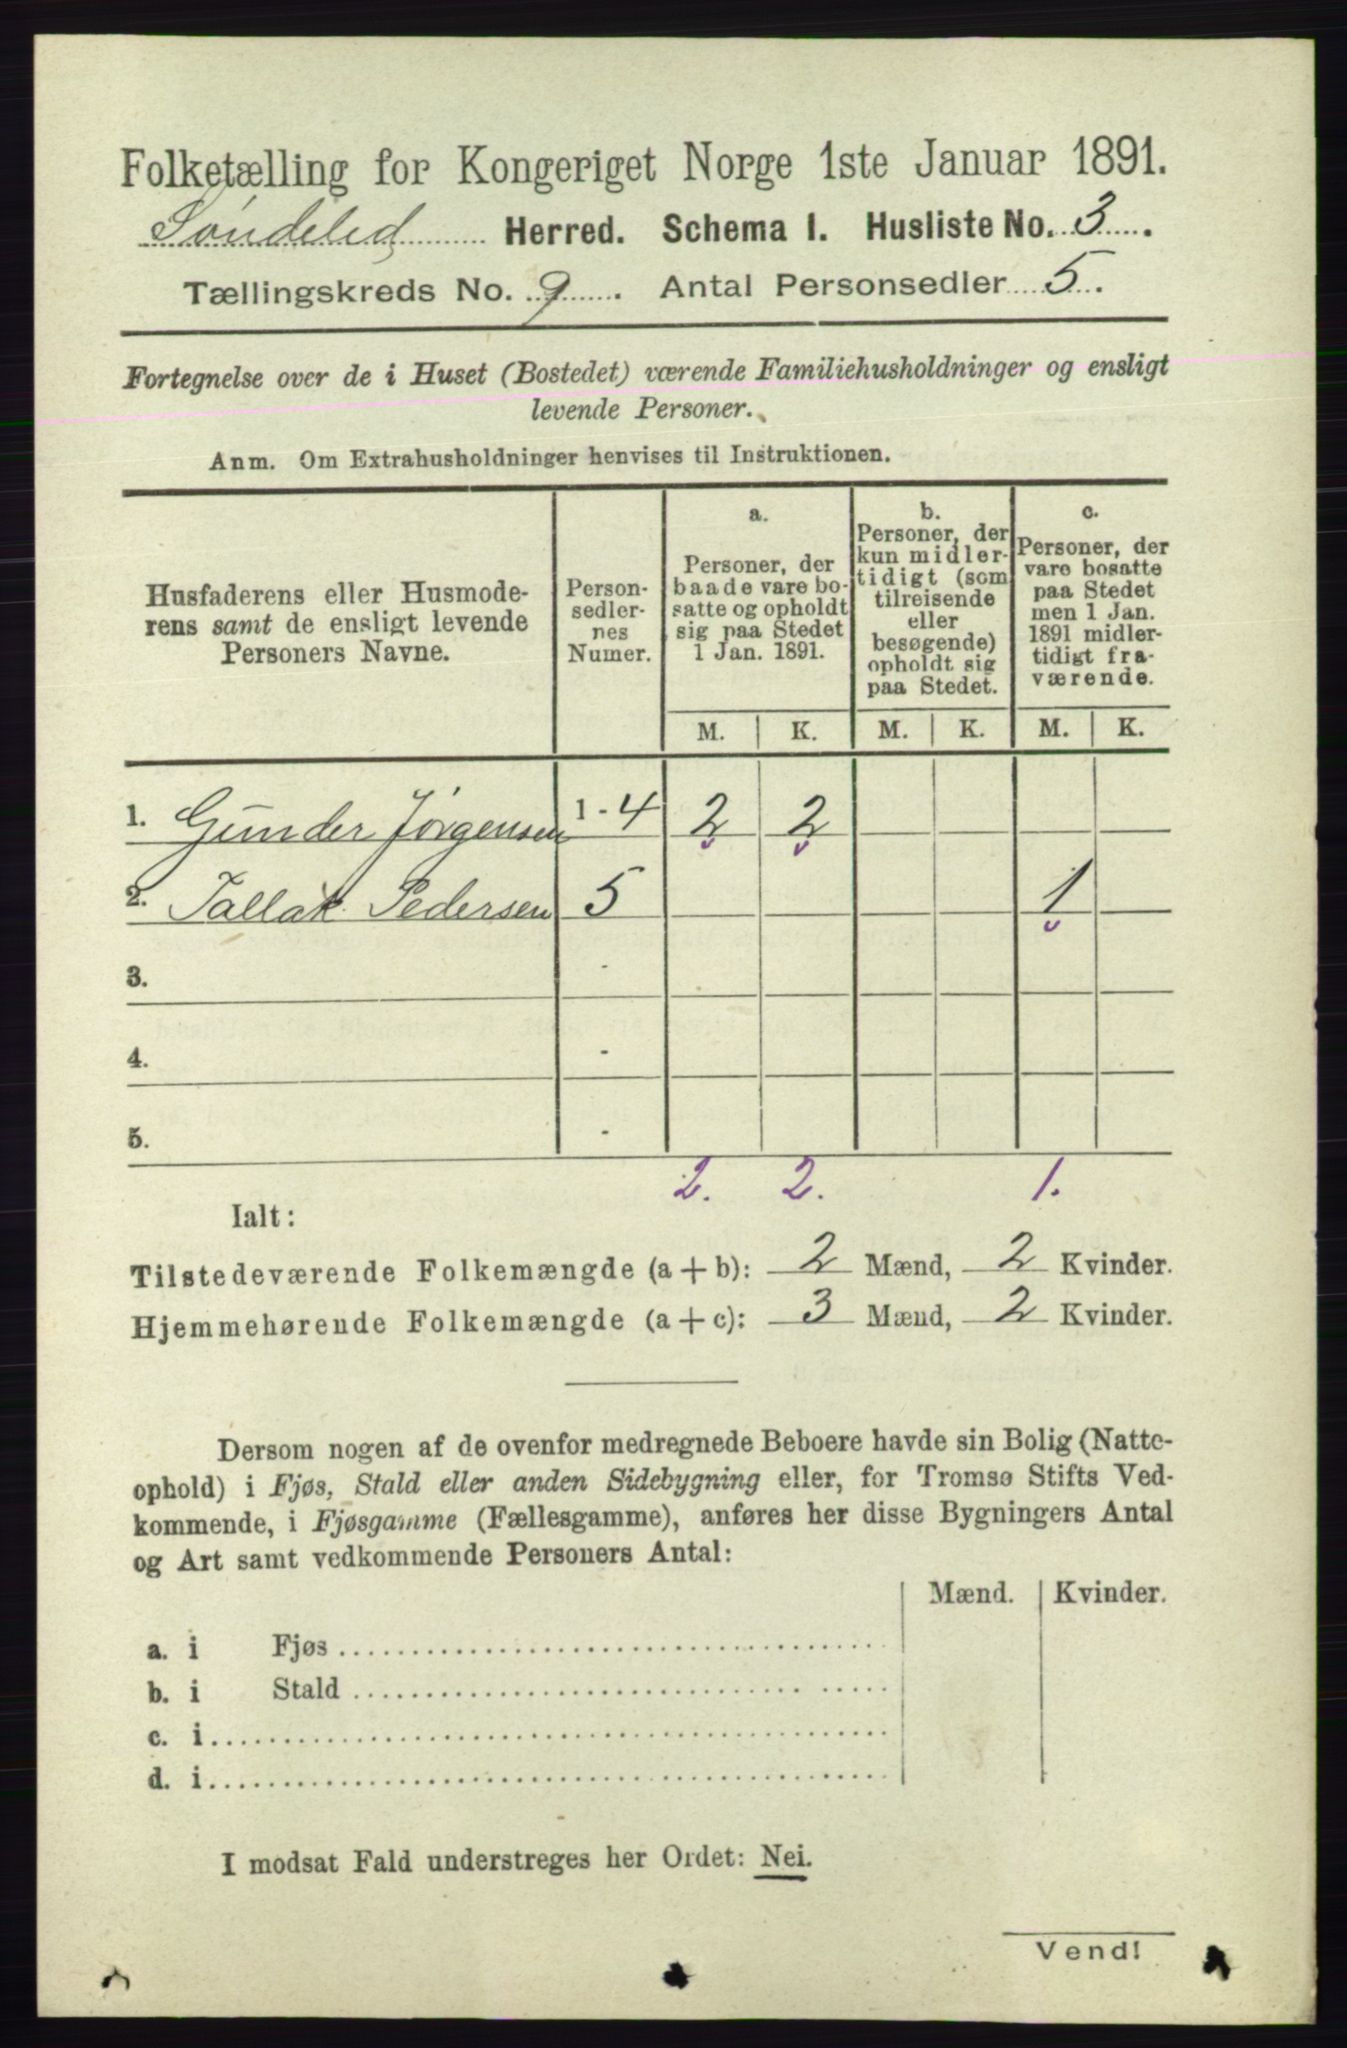 Folketælling for Kongeriget Norge 1ste Januar 1891.
Søndeled Herred. Schema 1. Husliste No. 3.
Tællingskreds No. 9. Antal Personsedler 5.
Fortegnelse over de i Huset (Bostedet) værende Familiehusholdninger og ensligt
levende Personer.
Anm. Om Extrahusholdninger henvises til Instruktionen.
Husfaderens eller Husmode-
rens samt de ensligt levende
Personers Navne.
Person-
sedler-
nes
Numer.
a.
Personer, der
baade vare bo-
satte og opholdt
sig paa Stedet
1 Jan. 1891.
b.
Personer, der
kun midler-
tidigt (som
tilreisende
eller
besøgende)
opholdt sig
paa Stedet.
c.
Personer, der
vare bosatte
paa Stedet
men 1 Jan.
1891 midler-
tidigt fra-
værende.
M. K. M. K. M. K.
1. Gunder Jörgensen 1-4 2 2
2. Tallak Pedersen 5 1
3. -
4. -
5. -
2. 2. 1.
Ialt:
Tilstedeværende Folkemængde (a + b): 2 Mænd, 2 Kvinder.
Hjemmehørende Folkemængde (a + c): 3 Mænd, 2 Kvinder.
Dersom nogen af de ovenfor medregnede Beboere havde sin Bolig (Natte-
ophold) i Fjøs, Stald eller anden Sidebygning eller, for Tromsø Stifts Ved-
kommende, i Fjøsgamme (Fællesgamme), anføres her disse Bygningers Antal
og Art samt vedkommende Personers Antal:
Mænd. Kvinder.
a. i Fjøs
b. i Stald
c. i
d. i
I modsat Fald understreges her Ordet: Nei.
Vend!